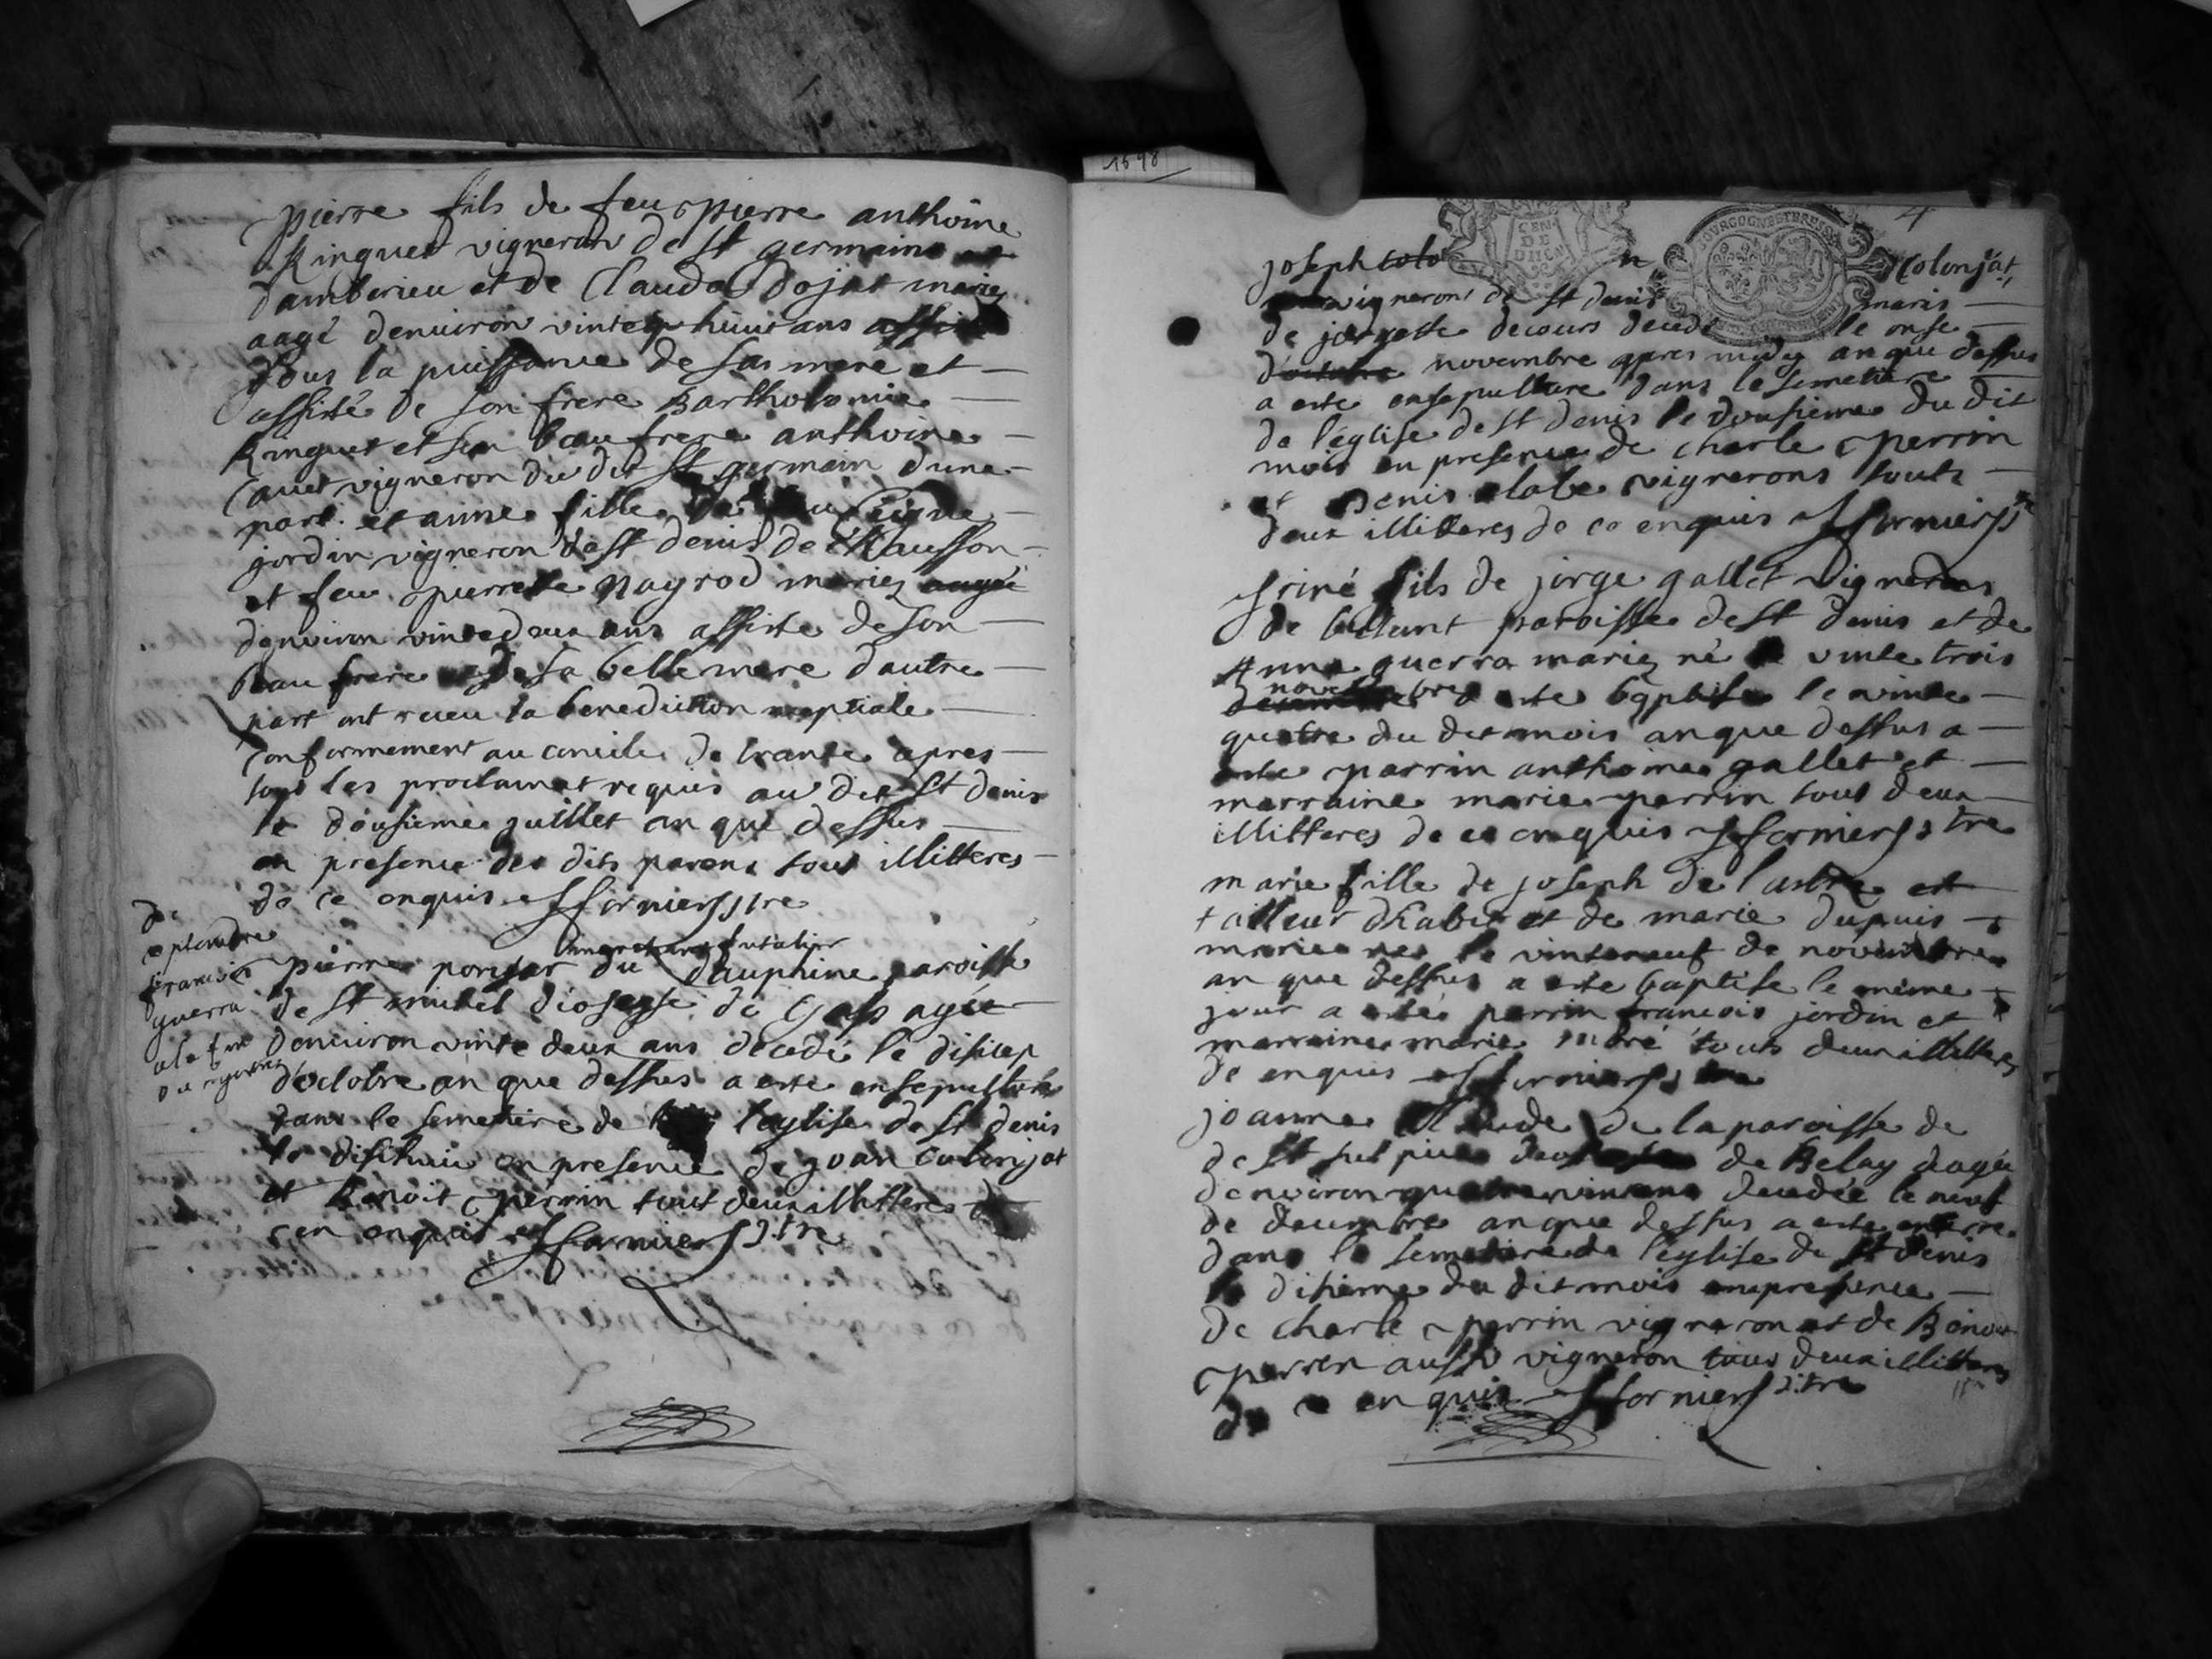 1698
pierre fils de feu pierre anthoine
Ringuet vigneron de st germain
damberieu et de Clauda Dojat mariez
aagé denuiron vintequ huict ans
sous la puissance de sa mere et
assisté de son frere Bartholomie
Ringuet et son beau frere anthoine
Cauet vigneron du dit st germain dune
part et anne fille de feu
jordin vigneron de st denis de Chausson
et feu pierrette nayrod mariez
denuiron vintedeux ans assiste de son
beau frere de sa belle mere dautre
part ont receu la benediction nuptiale
conformement au concile de trante apres
tous les proclamat requis au dit st denis
le dousieme juillet an que dessus
en presence des dits parens tous illitteres
de ce enquis fforniers ptre
de
septembre
francois
guerra
a la fin
du
pierre du dauphine paroisse
de st michel diosesse de Gap agée
denuiron vinte deux ans decedé le disicep
doctobre an que dessus a este ensepulturé
dans le semetiere de l'eglise de st denis
le disehuic en presence de joan Colonjat
et Benoit perrin tout deux illitteres de
cen enquis fforniers ptre
4
joseph Colonjat
vigneron de st denis maris
de jorgette decours decede le onse
d'octobre novembre apres midy an que dessus
a este ensepulture dans le semetiere
de l'eglise de st denis le dousieme du dit
mois en presence de charle perrin
et Denis labe vignerons touts
deux illitteres de ce enquis fforniers ptre
fils de jorge gallet vigneron
de paroisse de st denis et de
Anne guerra mariez né le vinte trois
novembre
decembre a este baptisé le vinte
quatre du dit mois an que dessus a
este parrin anthoine gallet et
marraine marie perrin tout deux
illitteres de ce enquis fforniers ptre
marie fille de joseph de lastre
tailleur dhabit et de marie dupuis
mariee nee le vinteneuf de novembre
an que dessus a este baptise le meme
jour a esté parrin francois jordin et
marraine marie touts deux illitteres
de enquis fforniers ptre
joanne Claude de la paroisse de
de st sulpice de Belay aagée
denviron quatrevins ans decedée le neuf
de decembre an que dessus a este enterre
dans le semetiere de l'eglise de st denis
le disieme du dit mois en presence
de charle perrin vigneron et de Benoit
perrin aussi vigneron tous deux illitteres
de ce enquis fforniers ptre